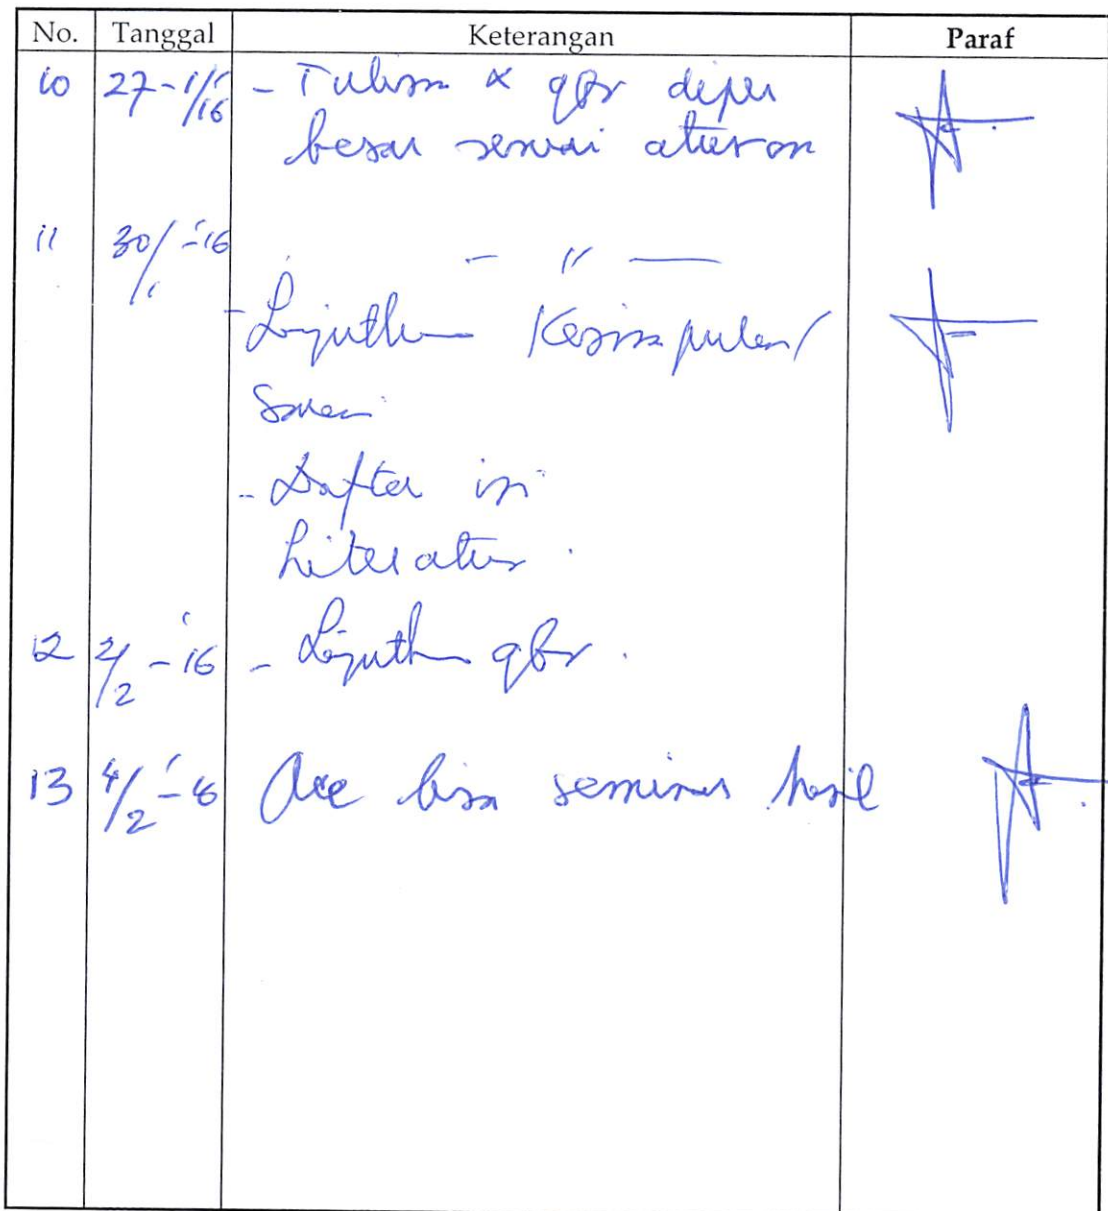 No. Tanggal Keterangan Paraf
10 27-1/'16 - Tulisan & gbr diper
besar sesuai aturan
11 30/1-'16 - 〃 -
- Lanjutkan Kesimpulan/
Saran
- Daftar isi
Literatur.
12 2/2-'16 - Lanjutkan gbr.
13 4/2-'16 Acc bisa seminar hasil